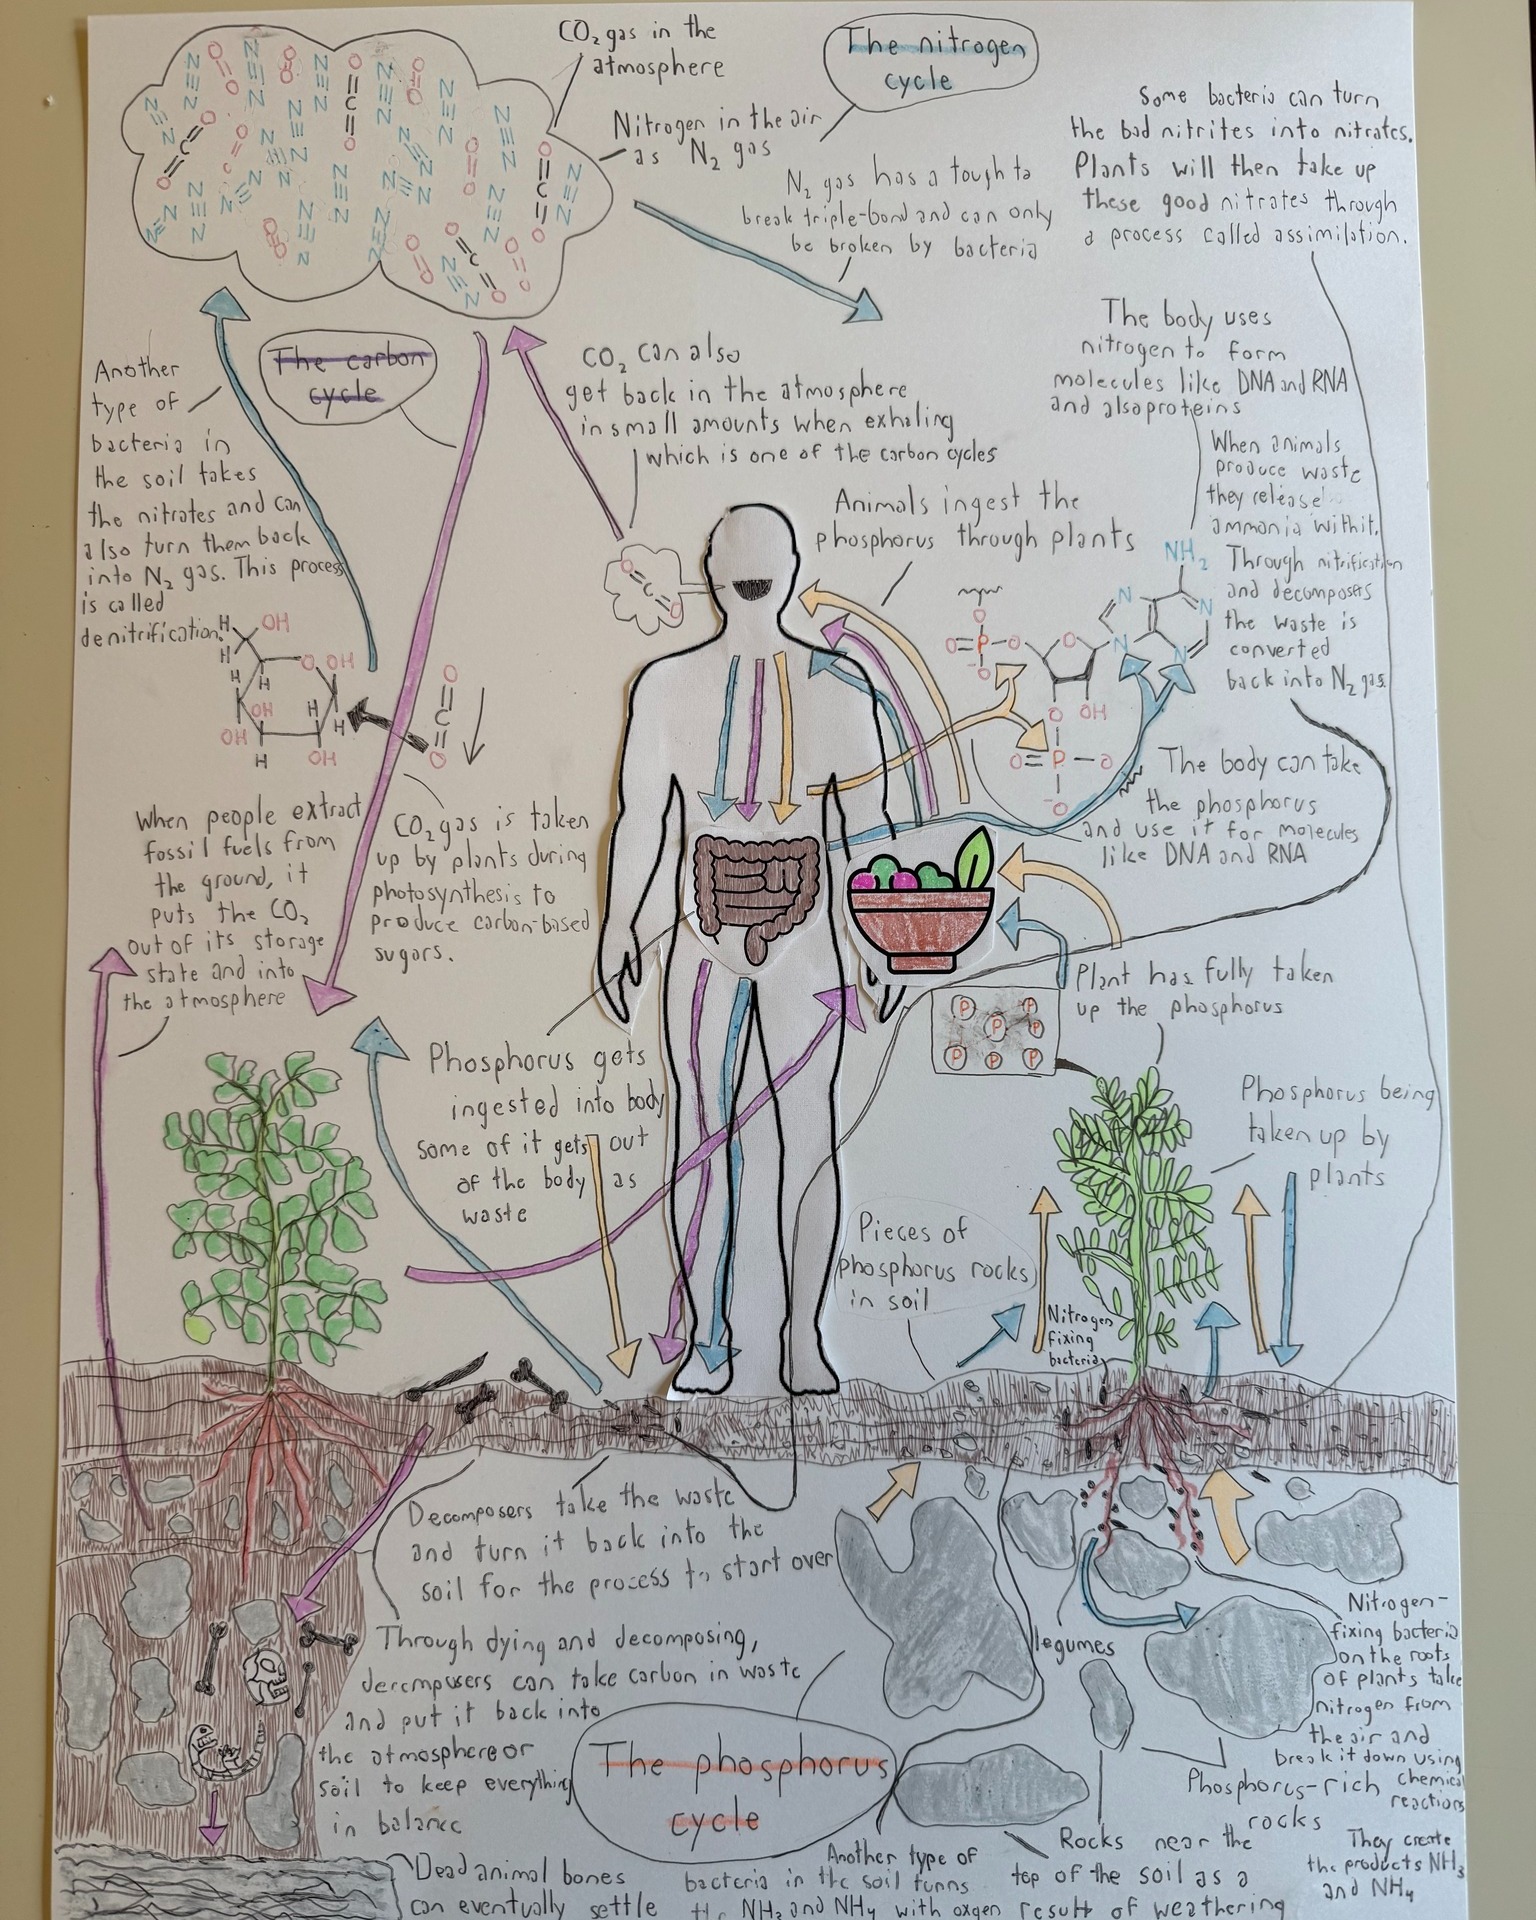 CO₂ gas in the
atmosphere
The nitrogen
cycle
Nitrogen in the air
as N₂ gas
N₂ gas has a tough to
break triple-bond and can only
be broken by bacteria
Some bacteria can turn
the bad nitrites into nitrates.
Plants will then take up
these good nitrates through
a process called assimilation.
The carbon
cycle
Another
type of
bacteria in
the soil takes
the nitrates and can
also turn them back
into N₂ gas. This process
is called
denitrification.
CO₂ can also
get back in the atmosphere
in small amounts when exhaling
which is one of the carbon cycles
The body uses
nitrogen to form
molecules like DNA and RNA
and also proteins
When animals
produce waste
they release
ammonia with it.
Through nitrification
and decomposers
the waste is
converted
back into N₂ gas.
Animals ingest the
phosphorus through plants
NH₂
The body can take
the phosphorus
and use it for molecules
like DNA and RNA
When people extract
fossil fuels from
the ground, it
puts the CO₂
out of its storage
state and into
the atmosphere
CO₂ gas is taken
up by plants during
photosynthesis to
produce carbon-based
sugars.
Plant has fully taken
up the phosphorus
Phosphorus gets
ingested into body
some of it gets out
of the body as
waste
Phosphorus being
taken up by
plants
Pieces of
phosphorus rocks
in soil
Nitrogen
fixing
bacteria
Decomposers take the waste
and turn it back into the
soil for the process to start over
Through dying and decomposing,
decmpusers can take carbon in waste
and put it back into
the atmosphere or
soil to keep everything
in balance
legumes
Nitrogen-
fixing bacteria
on the roots
of plants take
nitrogen from
the air and
break it down using
chemical
reactions
Phosphorus-rich
rocks
The phosphorus
cycle
They create
the products NH₃
and NH₄
Rocks near the
top of the soil as a
result of weathering
Another type of
bacteria in the soil turns
the NH₃ and NH₄ with oxgen
Dead animal bones
can eventually settle